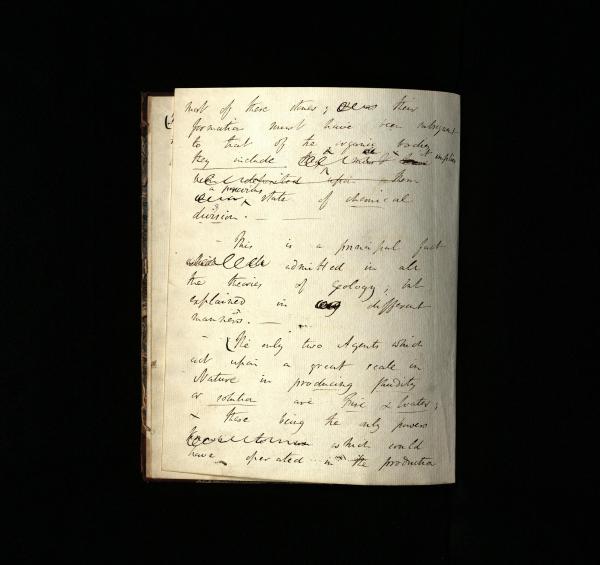 most of these stones; their
formation must have been subsequent
to that of the organic bodies
they include must imply
deposited upon them
a previous state of chemical
division. —
- This is a principal fact
admitted in all
the theories of Geology; but
explained in different
manners. —
- The only two Agents which
act upon a great scale in
Nature in producing fluidity
or solution are Fire & Water;
& these being the only powers
which could
have operated in the production